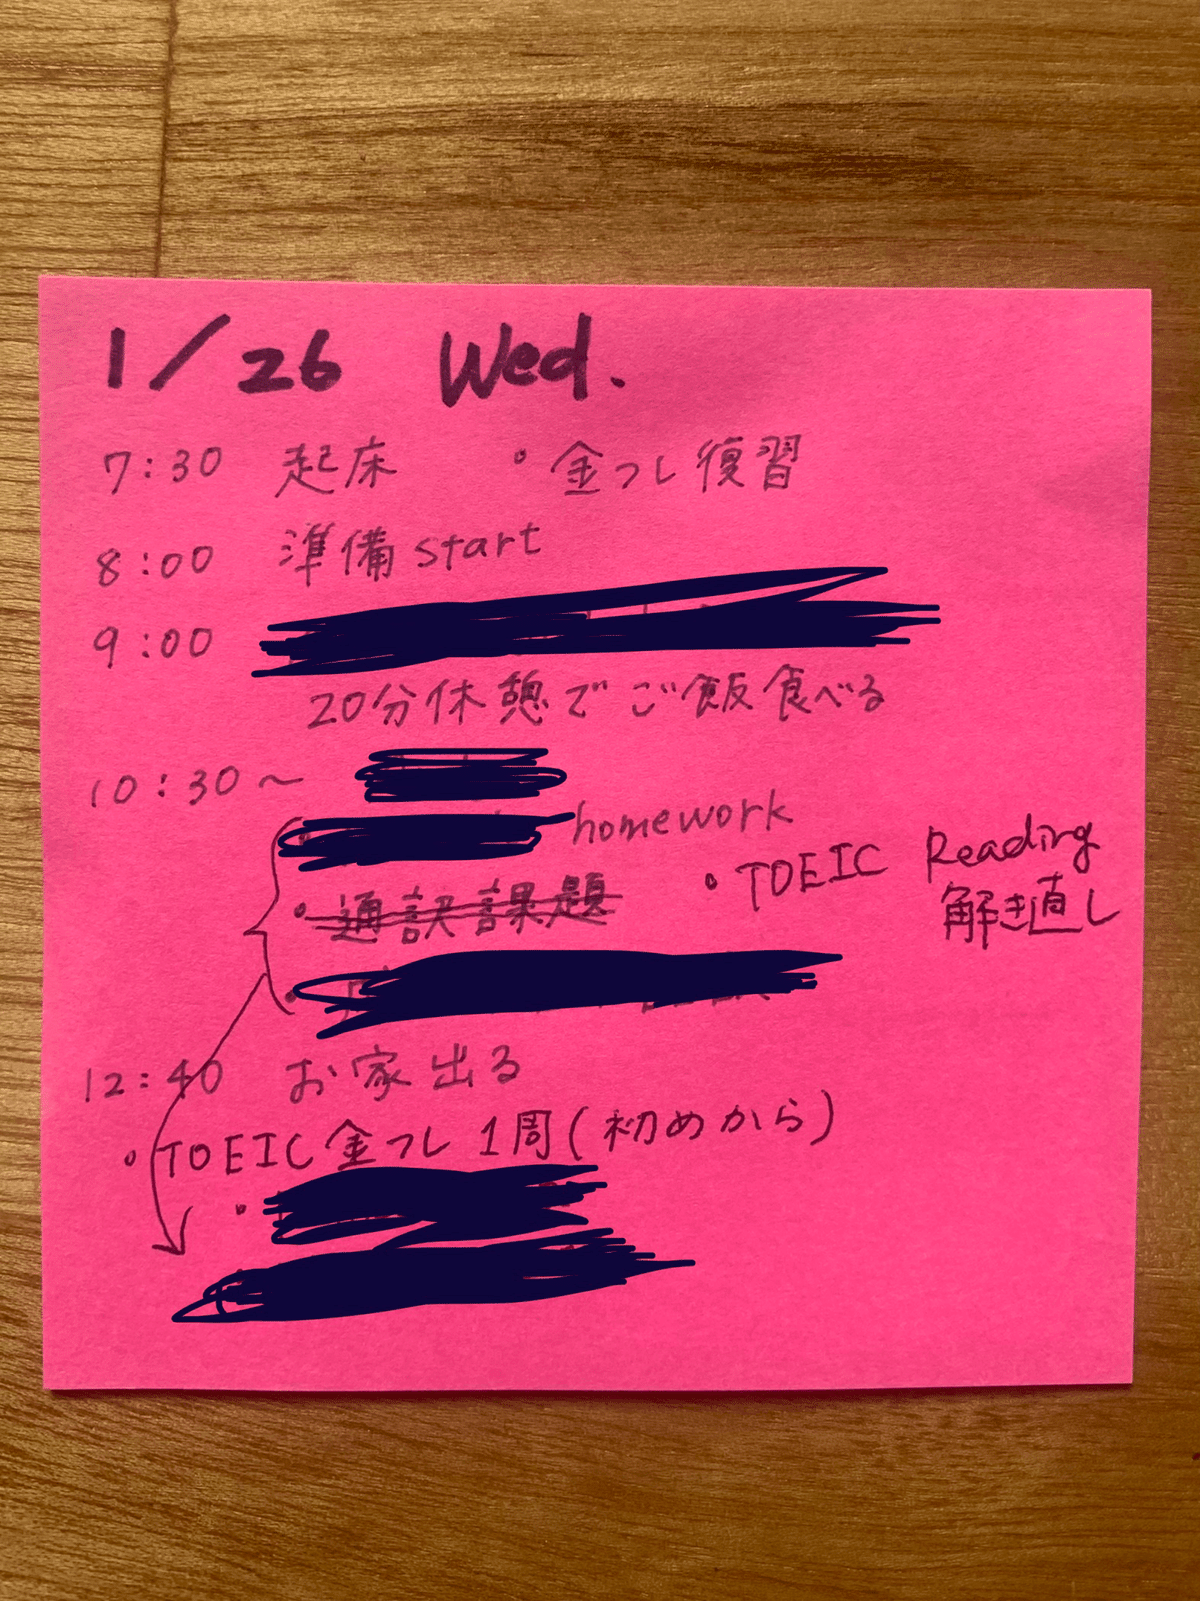 1/26 Wed.
7:30 起床 ・金フレ復習
8:00 準備start
9:00
20分休憩でご飯食べる
10:30〜
homework
・通訳課題
・TOEIC Reading
解き直し
12:40 お家出る
・TOEIC金フレ1周(初めから)